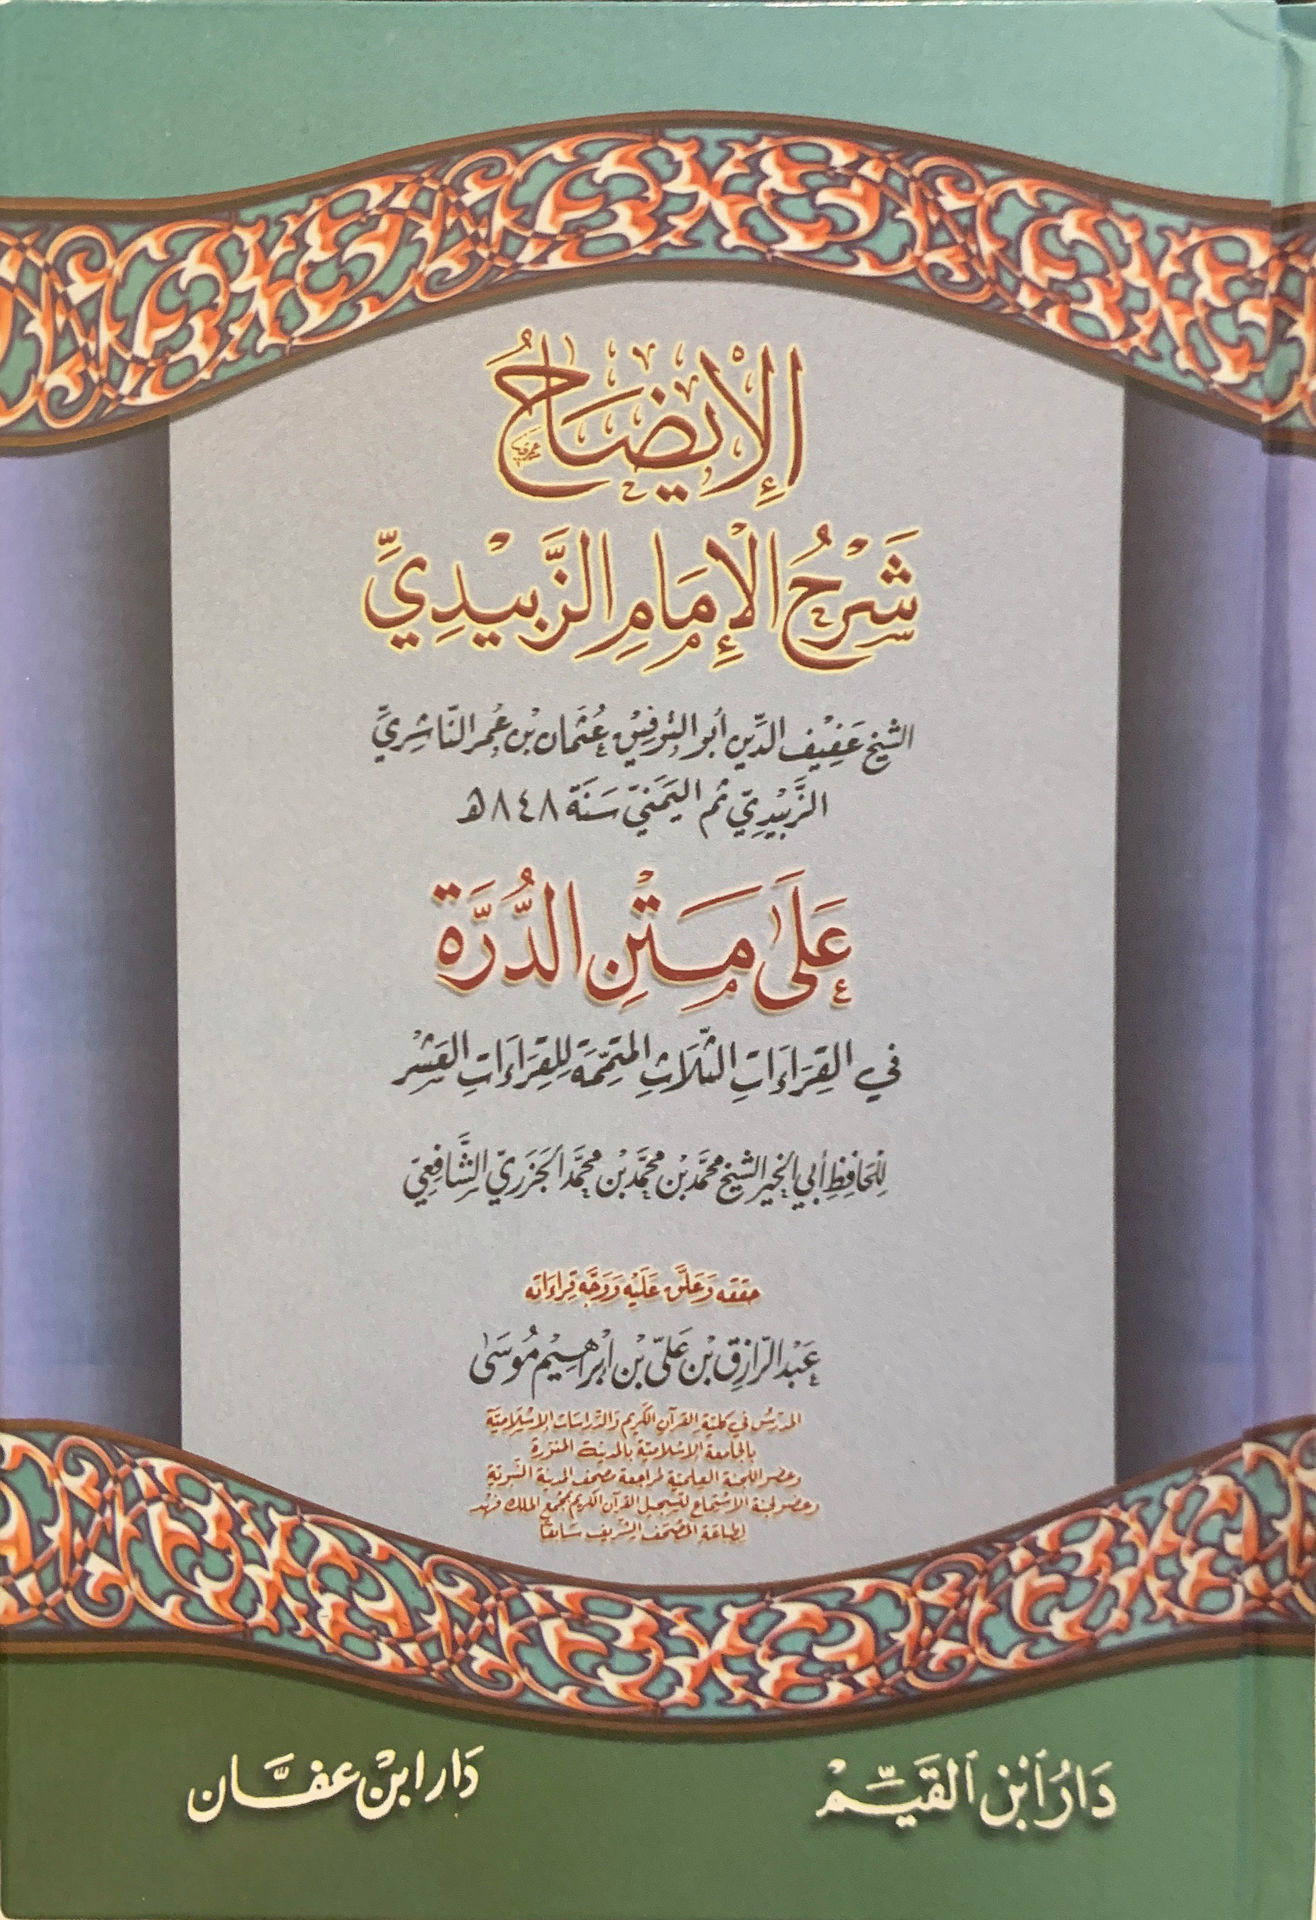 الإِيضَاحُ
شَرْحُ الإِمَامِ الزَّبِيْدِيِّ
الشيخ عَفِيْف الدِّين أبو التوفيق عُثمَان بْن عُمر النَّاشِرِيِّ
الزَّبِيْدِيّ ثم اليَمَنيّ سَنَة ٨٤٨هـ
عَلَىٰ مَتْنِ الدُّرَّة
في القِرَاءَاتِ الثّلَاثِ المتِمِّمَة لِلقِرَاءَاتِ العَشْر
لِلحَافِظِ أبي الخير الشيخ محمّد بْن محمَّد بْن محمَّد الجَزَريّ الشَّافِعيّ
حققه وَعَلّق عَلَيْه وَوَجَّه قِراءَاته
عَبْد الرَّازق بْن عَليّ بْن ابْراهِيْم مُوسَىٰ
المدرّسُ في كليّة القرآن الكَريم وَالدّراسَات الإسْلاميّة
بالجامعة الإسْلاميّة بالمدينة المنوّرة
وعضو اللجنة العِلميّة لمراجعة مصحف المدينة النّبويّة
وعضو لجنة الاسْتماع لتسْجيل القرآن الكريم بمجمّع الملك فهْد
لطباعَة المصْحَف الشّريف سَابقًا
دَارُ ٱبْن ٱلقَيِّمْ
دَار ابْن عفَّان